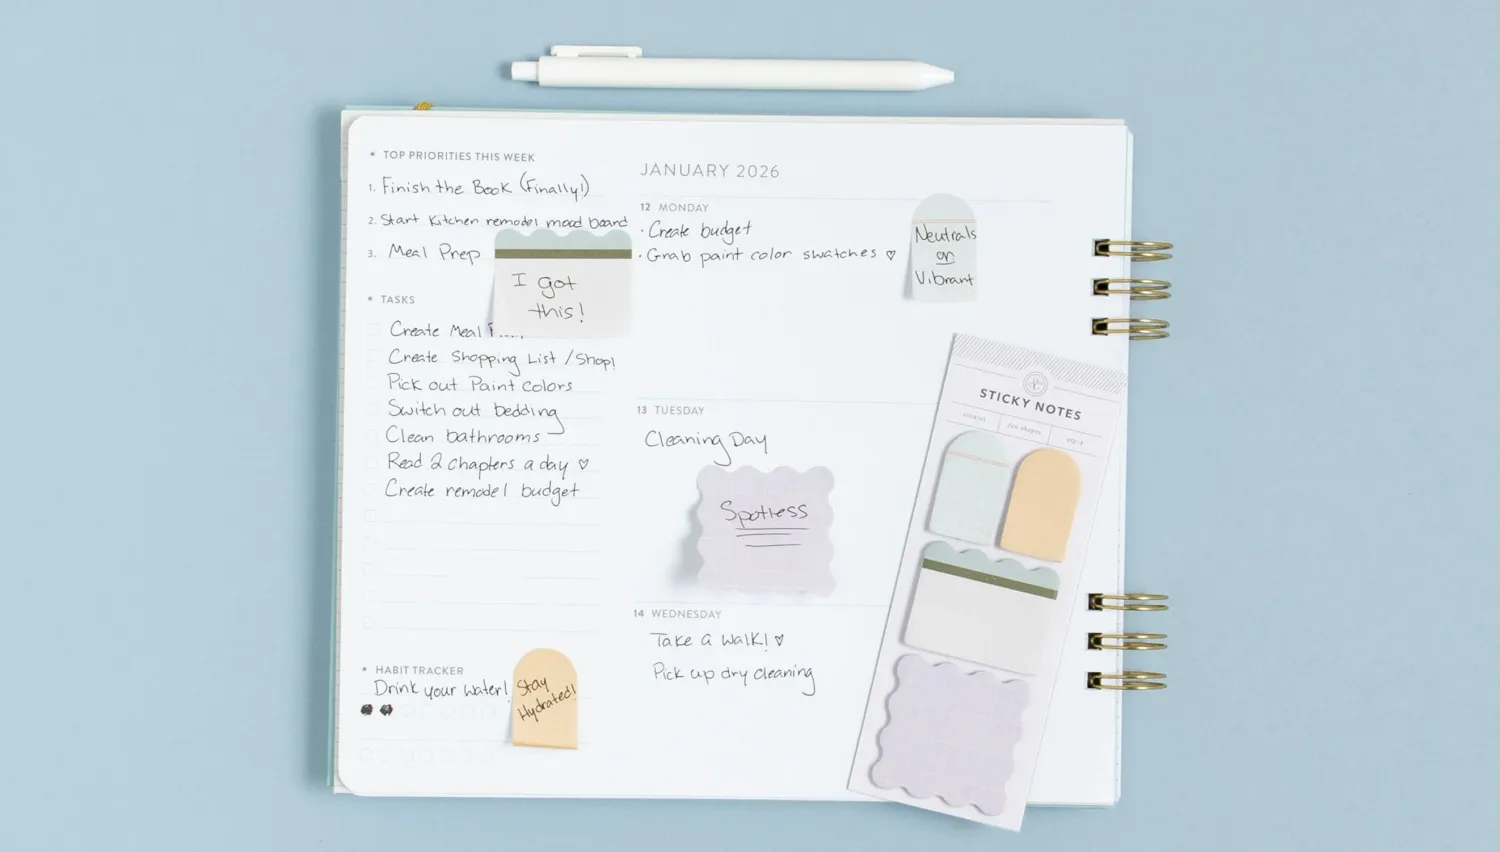 * TOP PRIORITIES THIS WEEK
1. Finish the Book (Finally!)
2. Start Kitchen remodel mood board
3. Meal Prep
I got
this!
* TASKS
Create Meal
Create Shopping List /Shop!
Pick out Paint colors
Switch out bedding
Clean bathrooms
Read 2 chapters a day ♡
Create remodel budget
* HABIT TRACKER
Drink your water!
Stay
Hydrated!
JANUARY 2026
12 MONDAY
· Create budget
· Grab paint color swatches ♡
Neutrals
or
Vibrant
13 TUESDAY
Cleaning Day
Spotless
14 WEDNESDAY
Take a walk! ♡
Pick up dry cleaning
STICKY NOTES